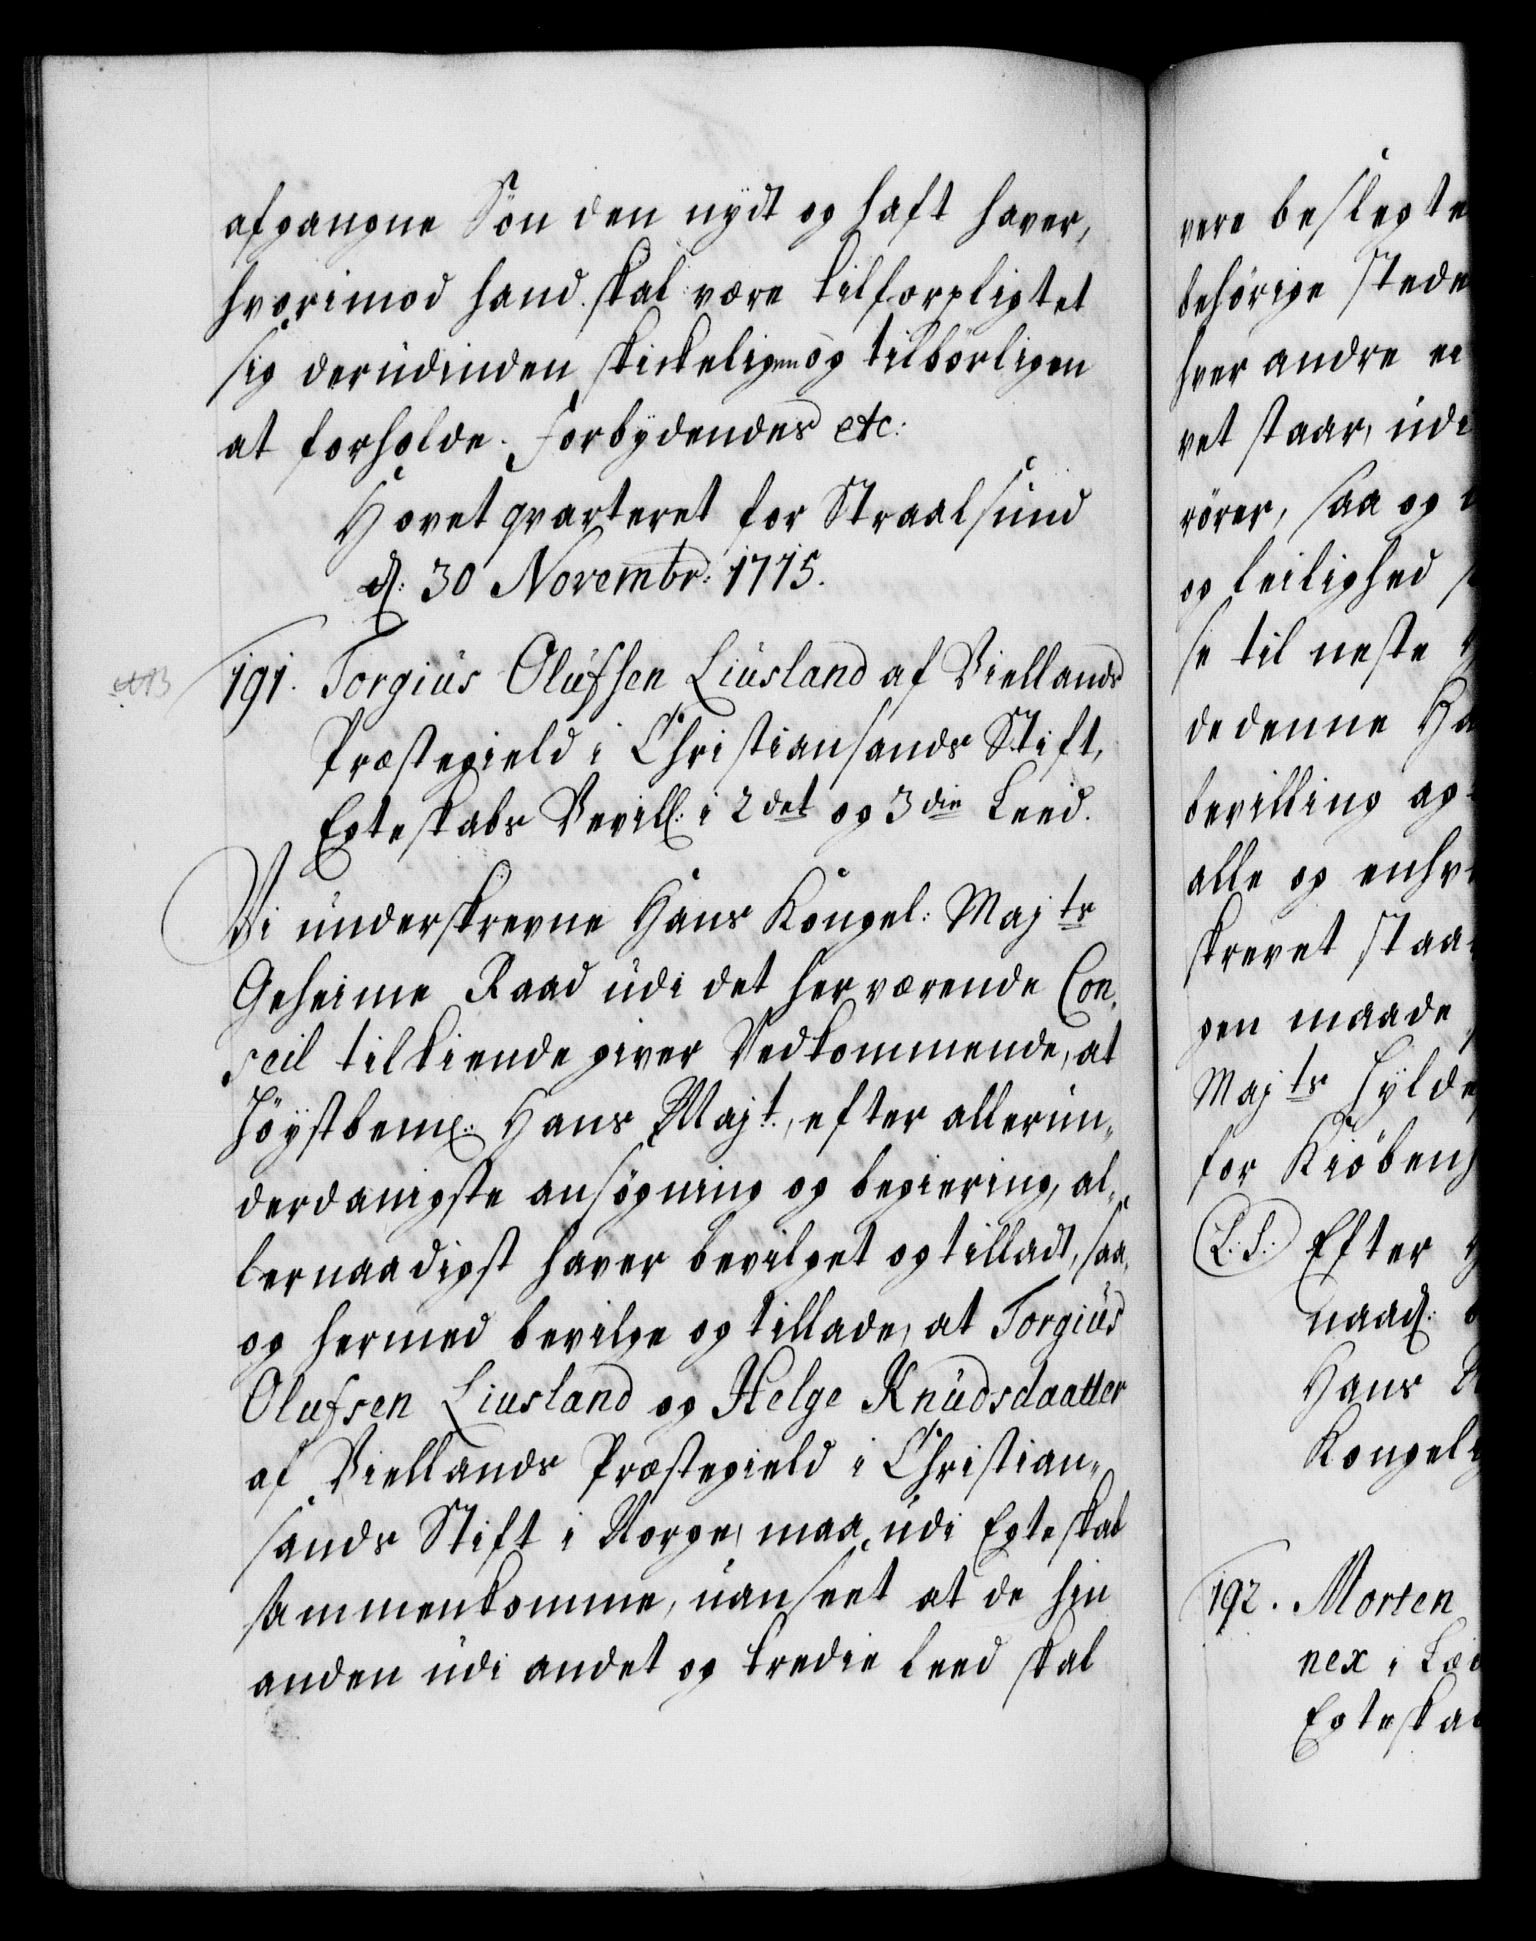 afgangne Sön den nydt og haft haver,
hvorimod hand skal være tilforpligtet
sig derudinden skickeligen og tilbörligen
at forholde. Forbydendes etc:
Hovetqvarteret for Straalsund
d: 30 Novembr: 1715.
191. Torgius Olufsen Liusland af Viellands
Præstegield i Christiansands Stift,
Egteskabs Bevill: i 2det og 3die Leed.
Vi underskrevne Hans Kongel: Majts
Geheime Raad udi det herværende Con-
seil tilkiende giver Vedkommende, at
Höystbemt: Hans Majt., efter allerun-
derdanigste ansögning og begiering, al-
lernaadigst haver bevilget og tilladt, saa
og hermed bevilge og tillade, at Torgius
Olufsen Liusland og Helge Knudsdaatter
af Viellands Præstegield i Christian-
sands Stift i Norge, maa udi Egteskab
sammenkomme, uanseet at de hin
anden udi andet og tredie Leed skal
vere beslegte
behörige stede
hver andre ei
vet staar, udi
rörer, saa og
og leilighed
se til neste
de denne Ha
bevilling ag
alle og enhv
skrevet staa
gen maade
Majts Hylde
for Kiöbenh
(L.S.) Efter
naad:
Hans
Kongel
192. Morten
nex i Læ
Egteskab